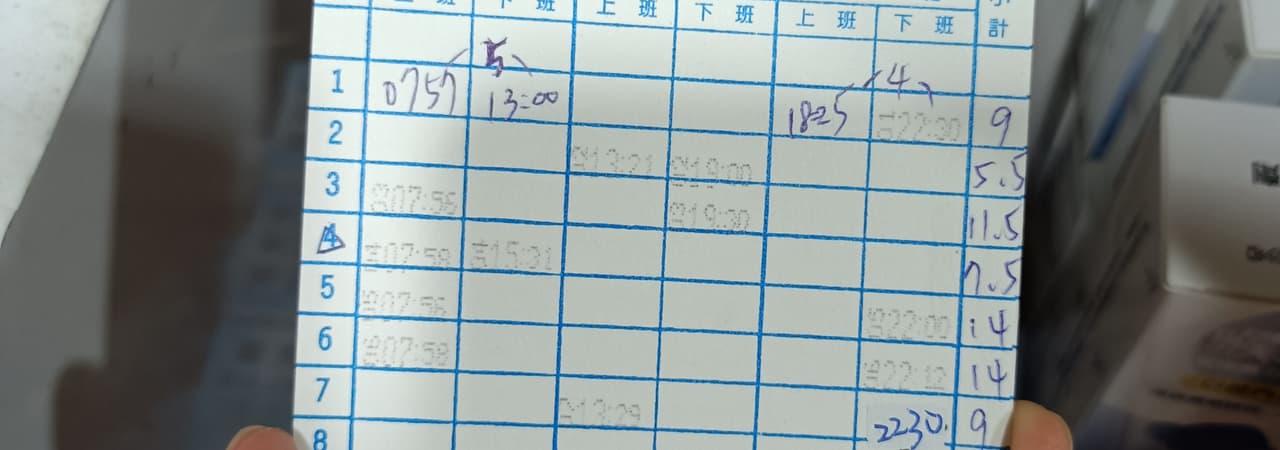 上 班 下 班 上 班 下 班 上 班 下 班 計
5 4
1 0757 13:00 1825 22:30 9
2 13:21 19:00 5.5
3 07:56 19:30 11.5
4 07:58 15:31 7.5
5 07:56 22:00 14
6 07:58 22:12 14
7 13:29 2230. 9
8